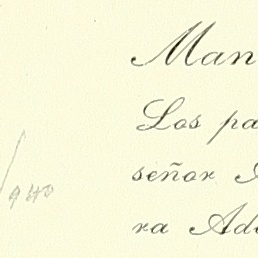 Man
Los pa
señor
ra Ad